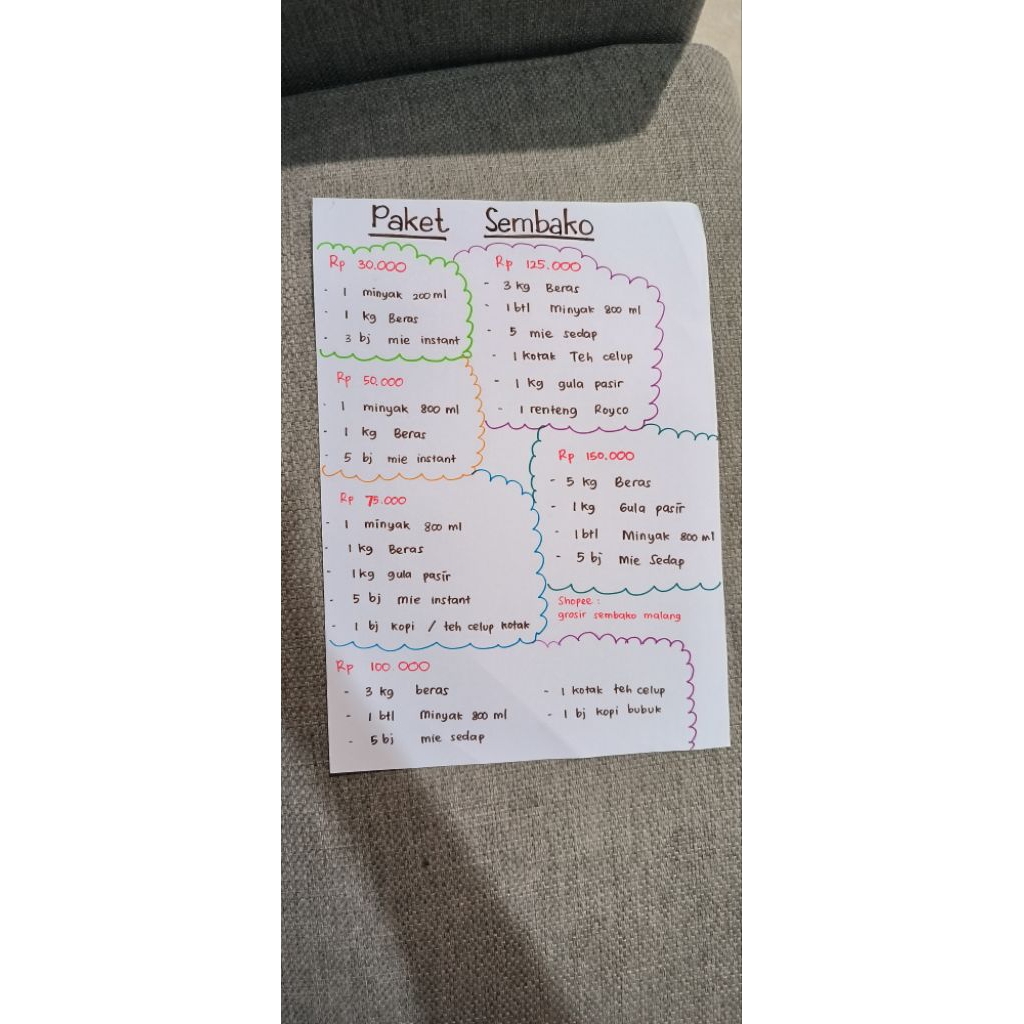 Paket Sembako
Rp 30.000
- 1 minyak 200 ml
- 1 kg Beras
- 3 bj mie instant
Rp 50.000
- 1 minyak 800 ml
- 1 kg Beras
- 5 bj mie instant
Rp 75.000
- 1 minyak 800 ml
- 1 kg Beras
- 1 kg gula pasir
- 5 bj mie instant
- 1 bj kopi / teh celup kotak
Rp 125.000
- 3 kg Beras
- 1 btl Minyak 800 ml
- 5 mie sedap
- 1 kotak Teh celup
- 1 kg gula pasir
- 1 renteng Royco
Rp 150.000
- 5 kg Beras
- 1 kg Gula pasir
- 1 btl Minyak 800 ml
- 5 bj Mie Sedap
Shopee :
grosir sembako malang
Rp 100.000
- 3 kg beras
- 1 btl minyak 800 ml
- 5 bj mie sedap
- 1 kotak teh celup
- 1 bj kopi bubuk